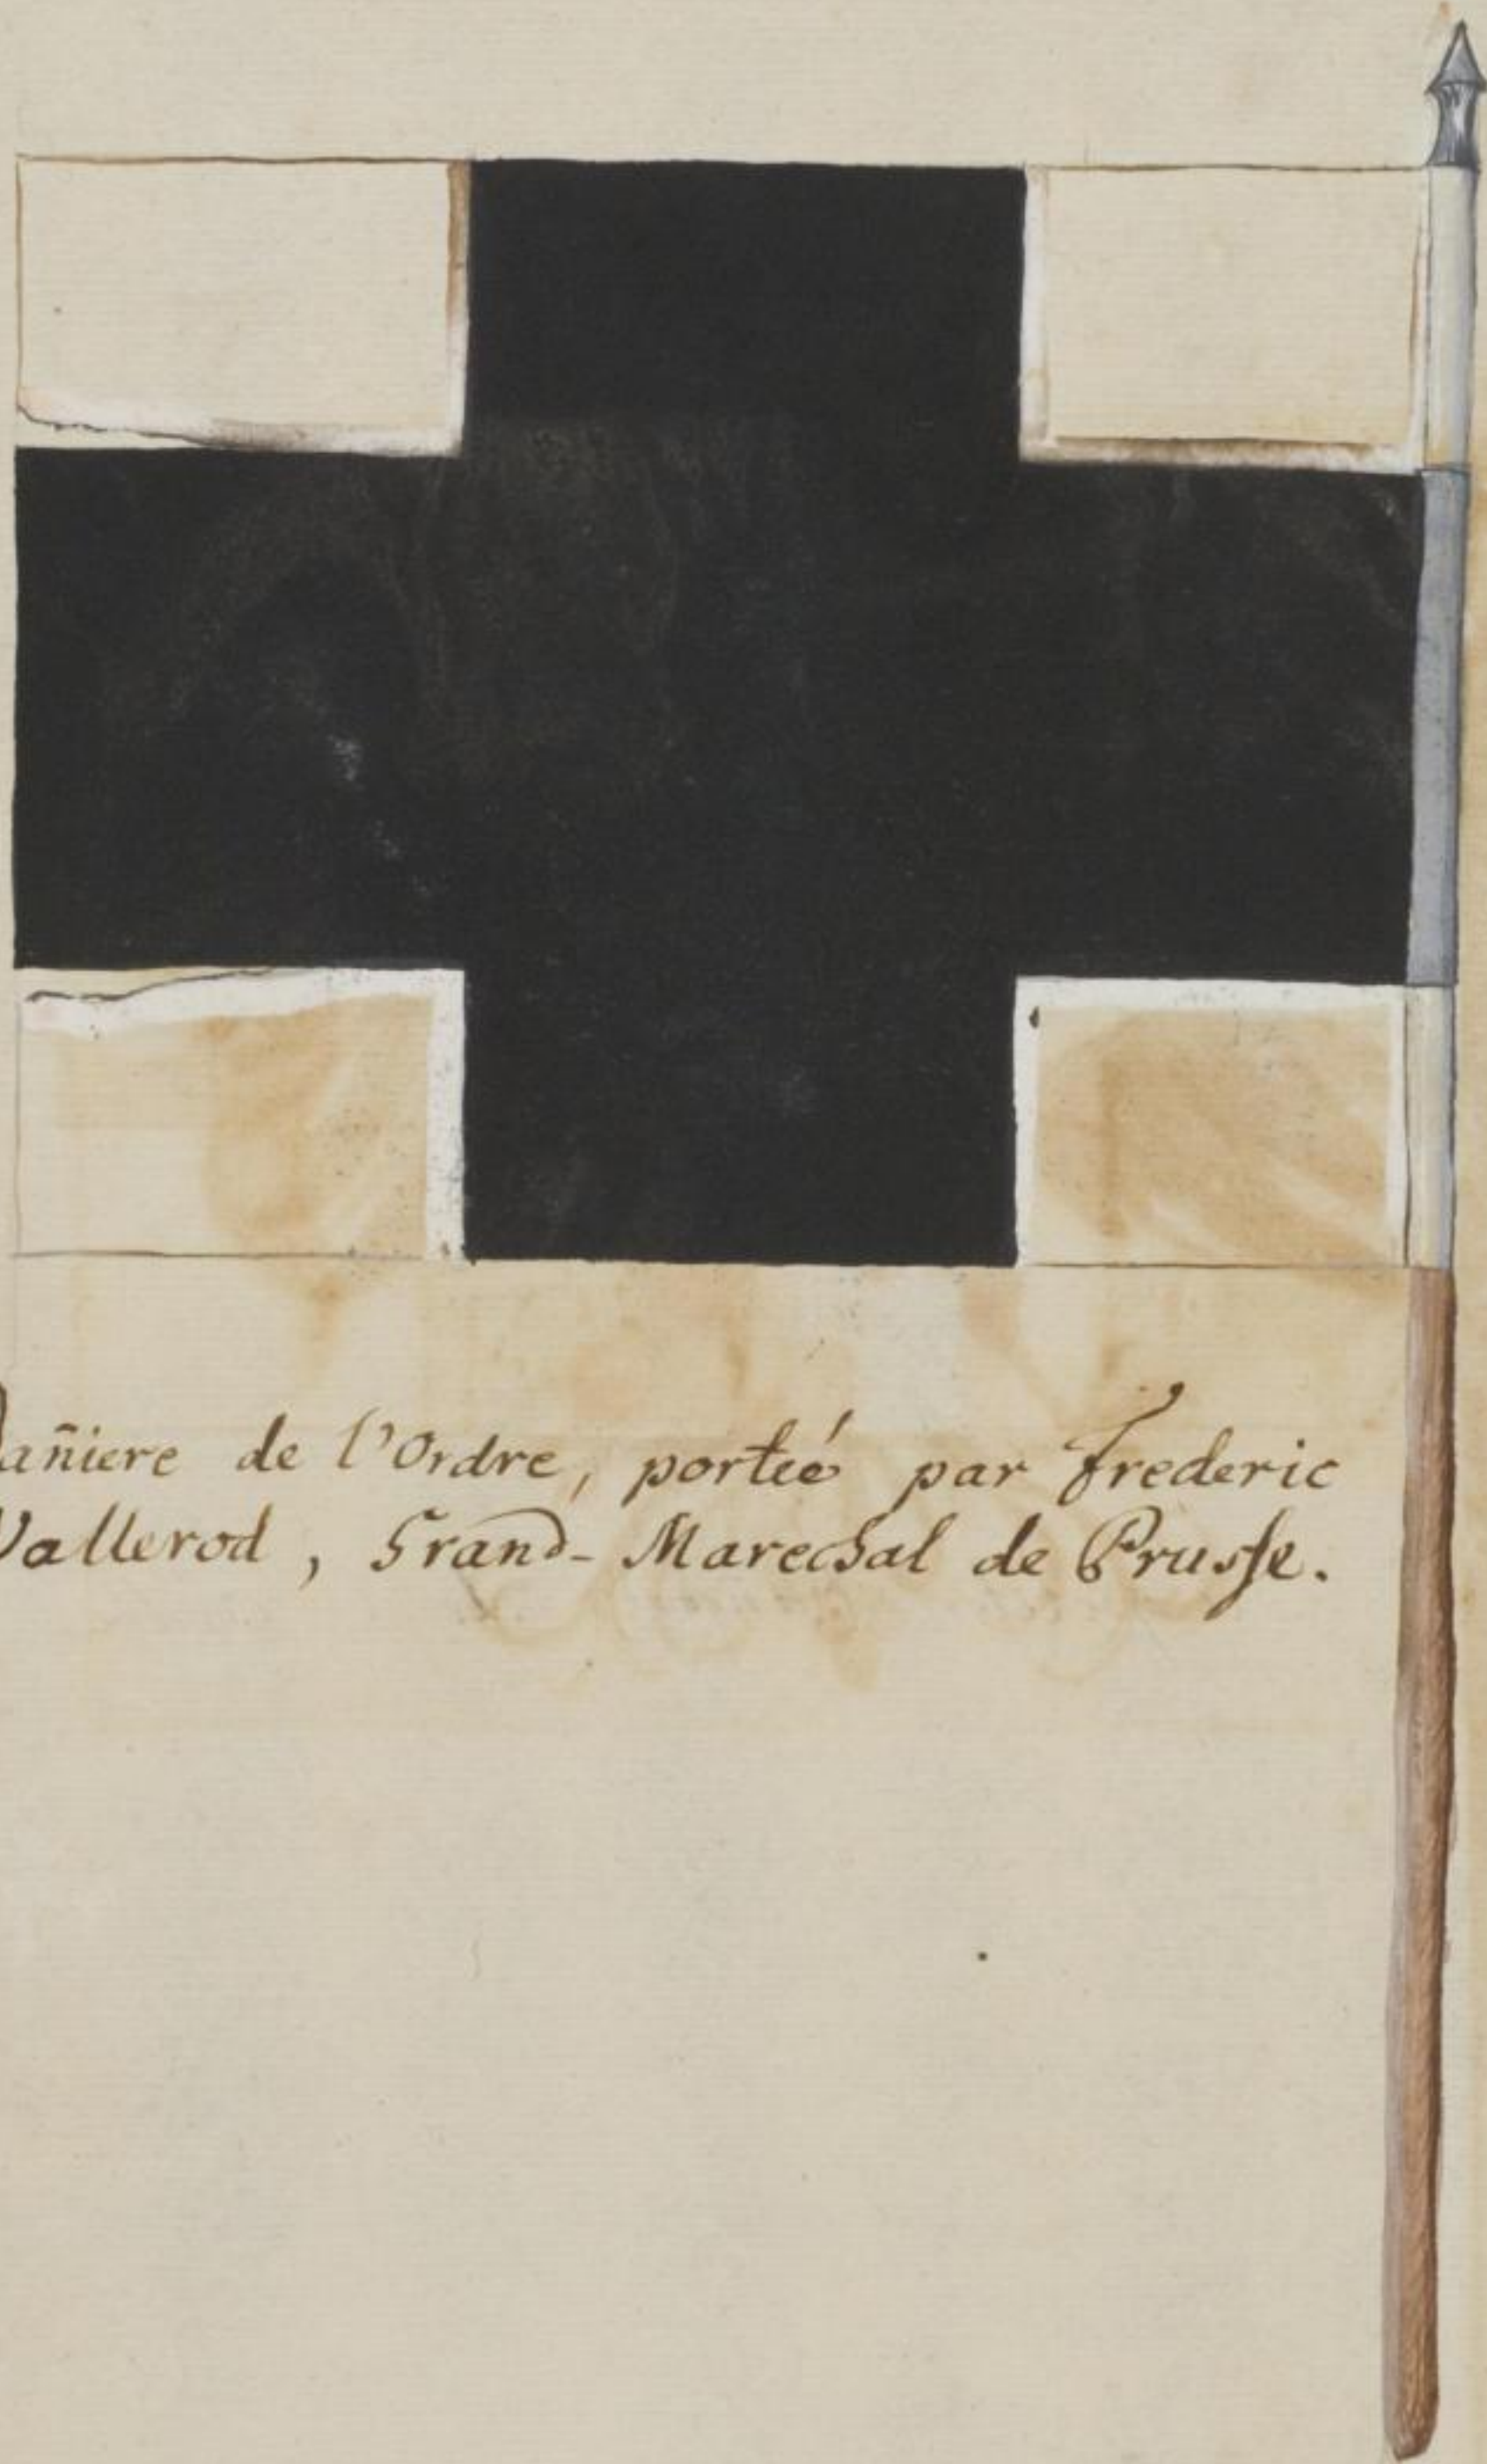 Bañiere de l'Ordre, porteé par Frederic
Wallerod, Grand-Marechal de Prusse.